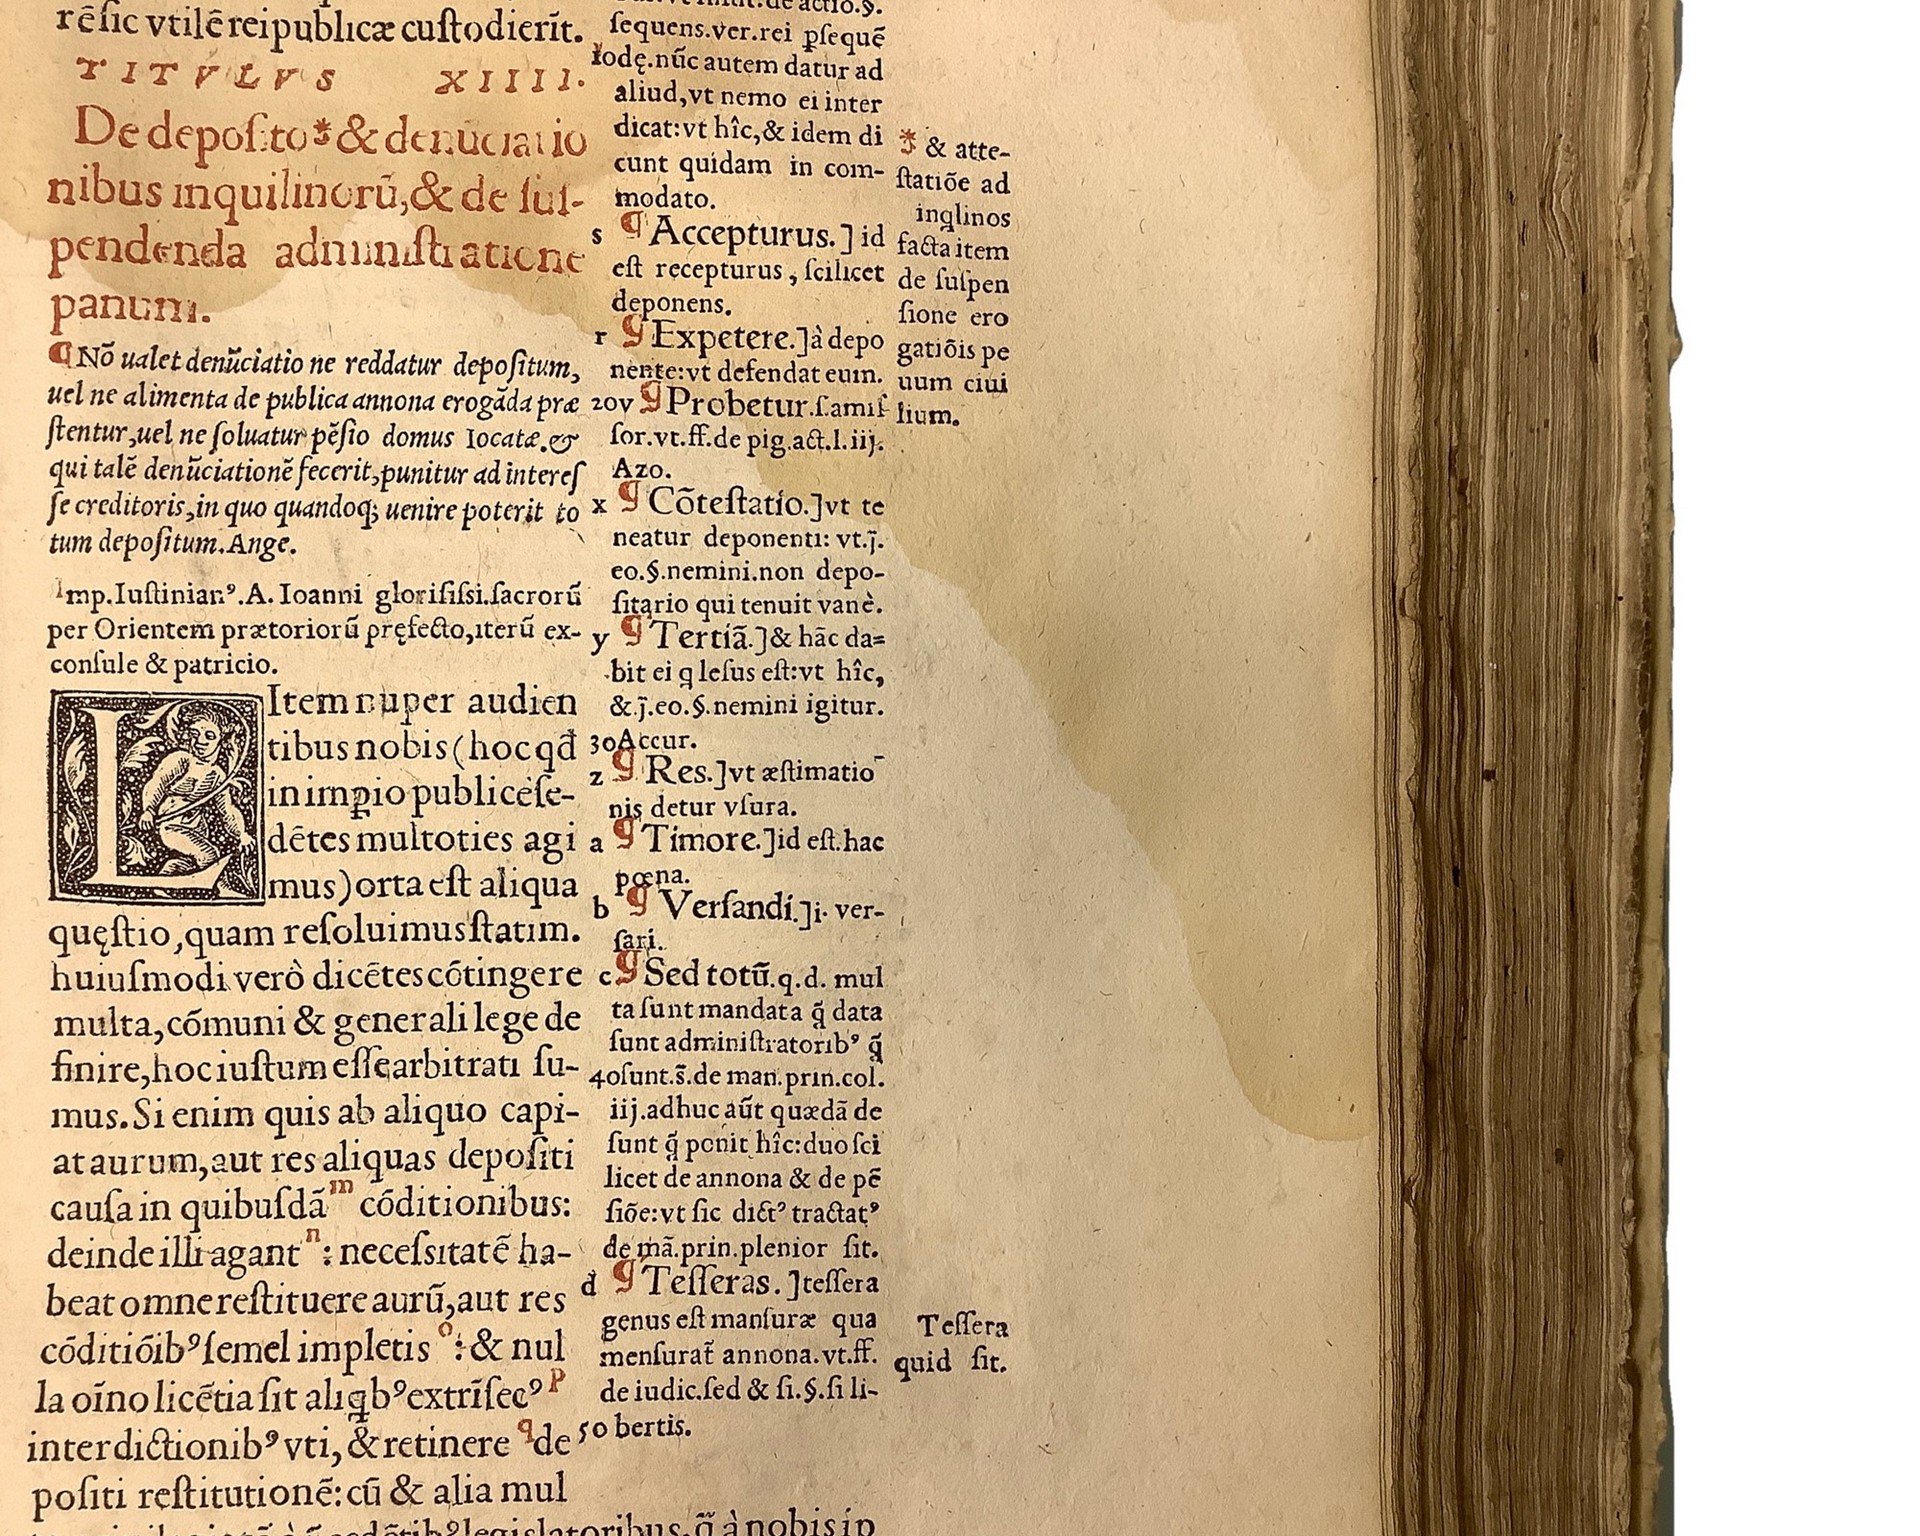 rēſic vtilē reipublicæ cuſtodierīt.
TITVLVS XIIII.
De depoſito* & denūciatio
nibus inquilinorū, & de ſuſ-
pendenda adminiſtratione
panum.
¶ Nō ualet denūciatio ne reddatur depoſitum,
uel ne alimenta de publica annona erogāda præ
ſtentur, uel ne ſoluatur pēſio domus locatæ. &
qui talē denūciationē fecerit, punitur ad intereſ
ſe creditoris, in quo quandoq; uenire poterit to
tum depoſitum. Ange.
Imp. Iuſtinianꝰ. A. Ioanni glorifiſsi. ſacrorū
per Orientem prætoriorū pręfecto, iterū ex-
conſule & patricio.
LItem nuper audien
tibus nobis (hoc qđ
in imꝑio publicè ſe-
dētes multoties agi
mus) orta eſt aliqua
quęſtio, quam reſoluimus ſtatim.
huiuſmodi verò dicētes cōtingere
multa, cōmuni & generali lege de
finire, hoc iuſtum eſſe arbitrati ſu-
mus. Si enim quis ab aliquo capi-
at aurum, aut res aliquas depoſiti
cauſa in quibuſdā m cōditionibus:
deinde illi agant n : neceſsitatē ha-
beat omne reſtituere aurū, aut res
cōditiōibꝰ ſemel impletis o : & nul
la oīno licētia ſit aliqbꝰ extrīſecꝰ p
interdictionibꝰ vti, & retinere q de
poſiti reſtitutionē: cū & alia mul
legislatoribus, q̃ à nobis ip
ſequens. ver. rei ꝑſequē
dę. nūc autem datur ad
aliud, vt nemo ei inter
dicat: vt hîc, & idem di
cunt quidam in com-
modato.
s ¶ Accepturus.] id
eſt recepturus, ſcilicet
deponens.
r ¶ Expetere.] à depo
nente: vt defendat eum.
20 v ¶ Probetur. ſ. amiſ
ſor. vt. ff. de pig. act. l. iij.
Azo.
x ¶ Cōteſtatio.] vt te
neatur deponenti: vt. j̄.
eo. §. nemini. non depo-
ſitario qui tenuit vanè.
y ¶ Tertiā.] & hāc da=
bit ei q leſus eſt: vt hîc,
& . j̄. eo. §. nemini igitur.
30 Accur.
z ¶ Res.] vt æſtimatio
nis detur vſura.
a ¶ Timore.] id eſt. hac
pœna.
b ¶ Verſandi.] i. ver-
ſari.
c ¶ Sed totū. q. d. mul
ta ſunt mandata q̃ data
ſunt adminiſtratoribꝰ q̃
40 ſunt. s̄. de man. prin. col.
iij. adhuc aūt quædā de
ſunt q̃ ponit hîc: duo ſci
licet de annona & de pē
ſiōe: vt ſic dictꝰ tractatꝰ
de mā. prin. plenior ſit.
d ¶ Teſſeras.] teſſera
genus eſt manſuræ qua
menſurat̄ annona. vt. ff.
de iudic. ſed & ſi. §. ſi li-
50 bertis.
* & atte-
ſtatiōe ad
inqlinos
facta item
de ſuſpen
ſione ero
gatiōis pe
uum ciui
lium.
Teſſera
quid ſit.